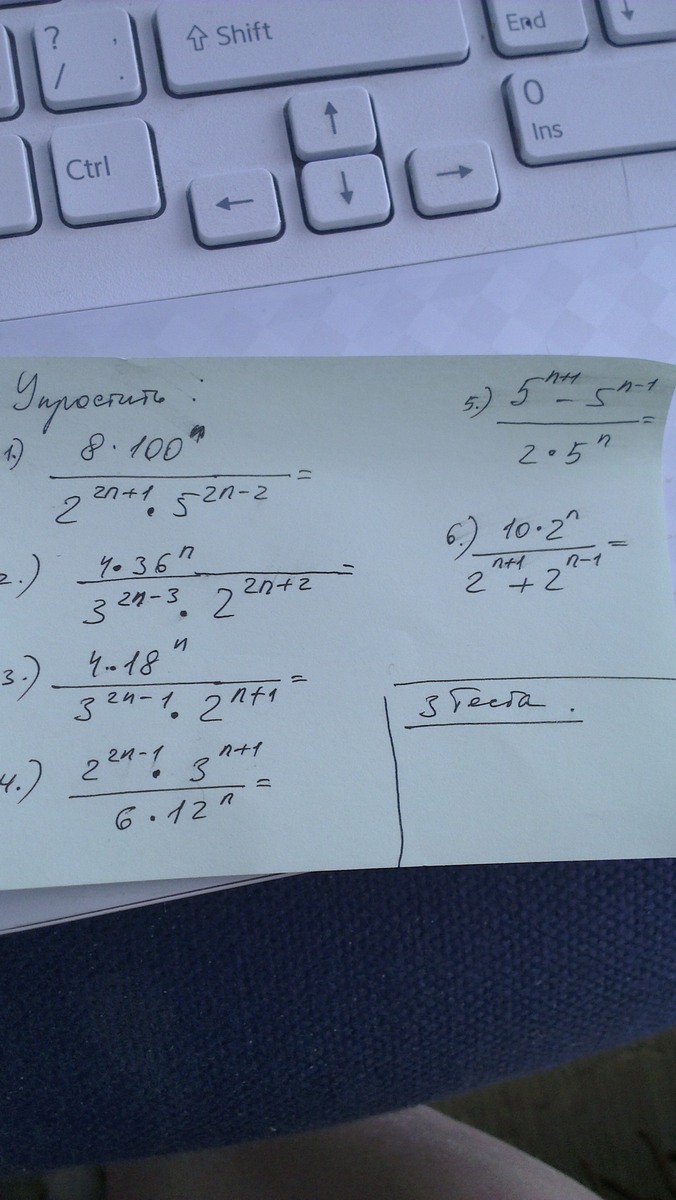 End
↓
? ,
/ .
⇧ Shift
0
Ins
Ctrl
↑
← ↓ →
Упростить :
1.) 8 · 100^n / 2^{2n+1} · 5^{2n-2} =
2.) 4 · 36^n / 3^{2n-3} · 2^{2n+2} =
3.) 4 · 18^n / 3^{2n-1} · 2^{n+1} =
4.) 2^{2n-1} · 3^{n+1} / 6 · 12^n =
5.) 5^{n+1} - 5^{n-1} / 2 · 5^n =
6.) 10 · 2^n / 2^{n+1} + 2^{n-1} =
3 Теста .